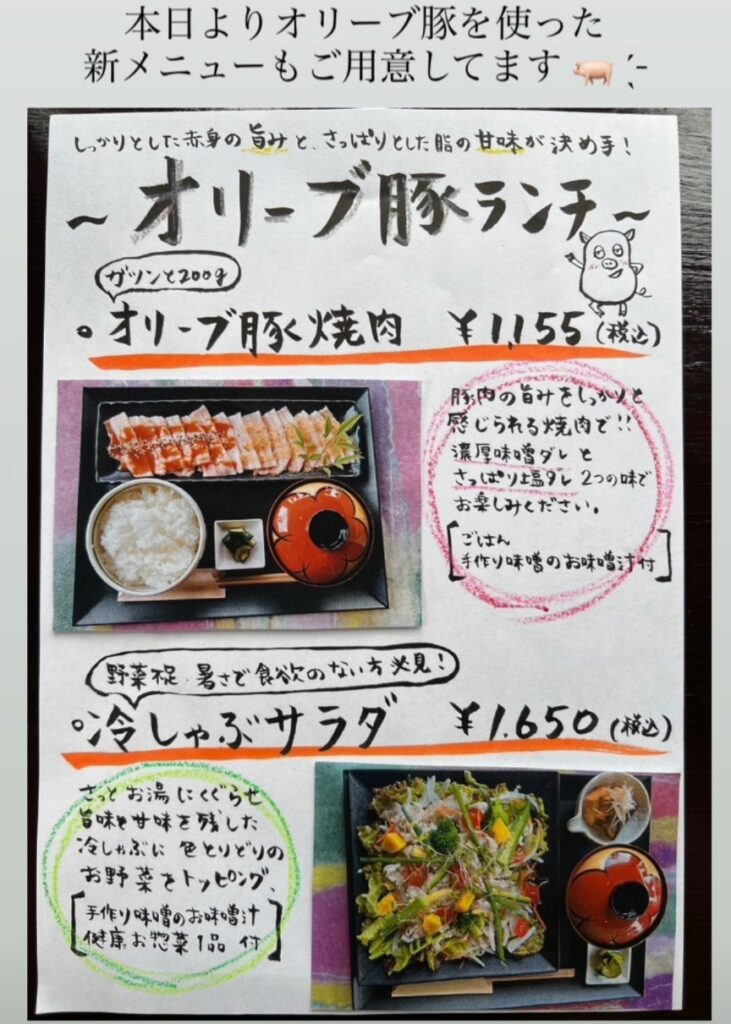 本日よりオリーブ豚を使った
新メニューもご用意してます
しっかりとした赤身の旨みと、さっぱりとした脂の甘味が決め手!
~オリーブ豚ランチ~
ガツンと200g
。オリーブ豚焼肉 ¥1,155(税込)
豚肉の旨みをしっかりと
感じられる焼肉で!!
濃厚味噌ダレと
さっぱり塩ダレ2つの味で
お楽しみください。
ごはん
手作り味噌のお味噌汁付
野菜不足、暑さで食欲のない方必見!
。冷しゃぶサラダ ¥1.650(税込)
さっとお湯にくぐらせ
旨味と甘味を残した
冷しゃぶに色とりどりの
お野菜をトッピング、
手作り味噌のお味噌汁
健康お惣菜1品 付